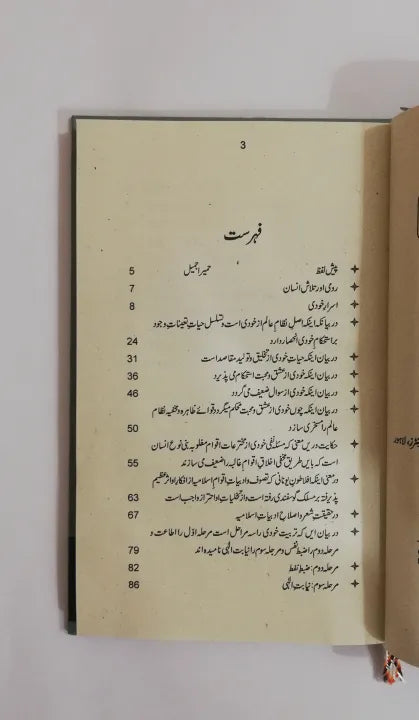 3
فہرست
پیش لفظ حمیرا جمیل 5
رومی اور تلاش انسان 7
اسرار خودی 8
در بیان اینکہ اصل نظام عالم از خودی است و تسلسل حیات تعینات وجود
بر استحکام خودی انحصار دارد 24
در بیان اینکہ حیات خودی از تخلیق و تولید مقاصد است 31
در بیان اینکہ خودی از عشق و محبت استحکام می پذیرد 36
در بیان اینکہ خودی از سوال ضعیف می گردد 46
در بیان اینکہ چوں خودی از عشق و محبت محکم میگردد قوائے ظاہرہ و مخفیہ نظام
عالم را مسخر می سازد 50
حکایت دریں معنی کہ مسئلہ نفی خودی از مخترعات اقوام مغلوبہ بنی نوع انسان
است کہ بایں طریق مخفی اخلاق اقوام غالبہ را ضعیف می سازند 55
در معنی اینکہ افلاطون یونانی کہ تصوف و ادبیات اقوام اسلامیہ از افکار او اثر عظیم
پذیرفتہ بر مسلک گوسفندی رفتہ است و از تخیلات او احتراز واجب است 63
در حقیقت شعر و اصلاح ادبیات اسلامیہ 67
در بیان ایں کہ تربیت خودی را سہ مراحل است مرحلہ اوّل را اطاعت و
مرحلہ دوم را ضبط نفس و مرحلہ سوم را نیابت الٰہی نامیدہ اند 79
مرحلہ دوم: ضبط نفط 82
مرحلہ سوم: نیابت الٰہی 86
لاہور